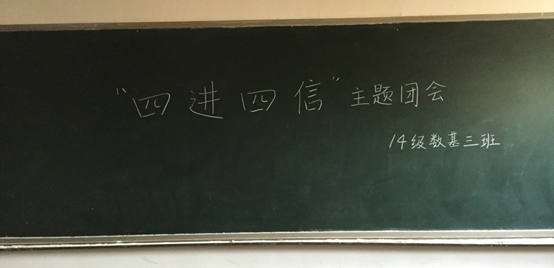 “四进四信”主题团会
14级数基三班